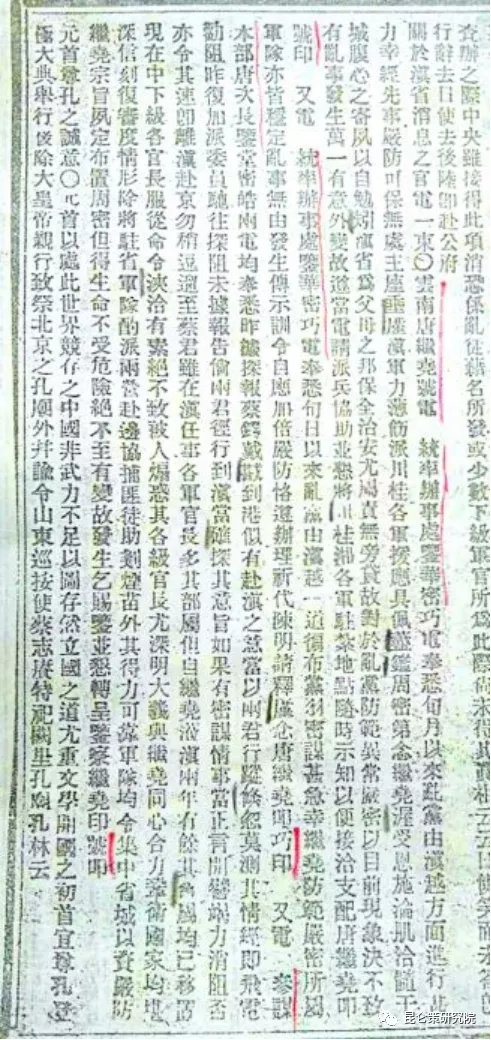 查辦之際中央雖接得此項消恐係亂徒藉名所發或少數下級軍官所爲此際尚未得其眞相云云日使笑而未答
行辭去日使去後陸卽赴公府
關於滇省消息之官電一束〇雲南唐繼堯號電 統率辦事處鑒華密巧電奉悉旬月以來亂黨由滇越方面進行甚
力幸經先事嚴防可保無虞主座廑慮滇軍力薄飭派川桂各軍援應具佩藎籌周密第念繼堯渥受恩施淪肌浹髓干
城腹心之寄夙以自勉矧滇省爲父母之邦保全治安尤屬責無旁貸故對於亂黨防範異常嚴密以目前現象決不致
有亂事發生萬一有意外變故遂當電請派兵協助並懇將川桂湘各軍駐紮地點隨時示知以便接洽支配唐繼堯叩
號印 又電 統率辦事處鑒華密巧電奉悉旬日以來亂黨由滇越一道徧布黨羽密謀甚急幸繼堯防範嚴密所屬
軍隊亦皆穩定亂事無由發生傳示訓令自應加倍嚴防恪遵辦理祈代陳明請釋廑念唐繼堯叩巧印 又電 參謀
本部唐次長鑒堂密皓兩電均奉悉昨據探報蔡鍔戴戡到港似有赴滇之意當以兩君行蹤倏忽莫測其情經卽飛電
勸阻昨復加派委員馳往探阻未據報告倘兩君徑行到滇當確探其意旨如果有密謀情事當正言開譬竭力消阻否
亦令其速卽離滇赴京勿稍逗遛至蔡君雖在滇任事各軍官長多其部屬但自繼堯涖滇兩年有餘其舊屬均已移置
現在中下級各官長服從命令浹洽有素絕不致被人煽惑其各級官長尤深明大義與繼堯同心合力擁衛國家均堪
深信刻復審度情形除將駐省軍隊酌派兩營赴邊協捕匪徒助剗煙苗外其得力可靠軍隊均令集中省城以資嚴防
繼堯宗旨夙定布置周密但得生命不受危險絕不至有變故發生乞賜鑒並懇轉呈鑒察繼堯印號叩
元首尊孔之誠意〇元首以處此世界競存之中國非武力不足以圖存然立國之道尤重文學開國之初首宜尊孔登
極大典舉行後除大皇帝親行致祭北京之孔廟外幷諭令山東巡按使蔡志賡特祀闕里孔廟孔林云
昆仑策研究院